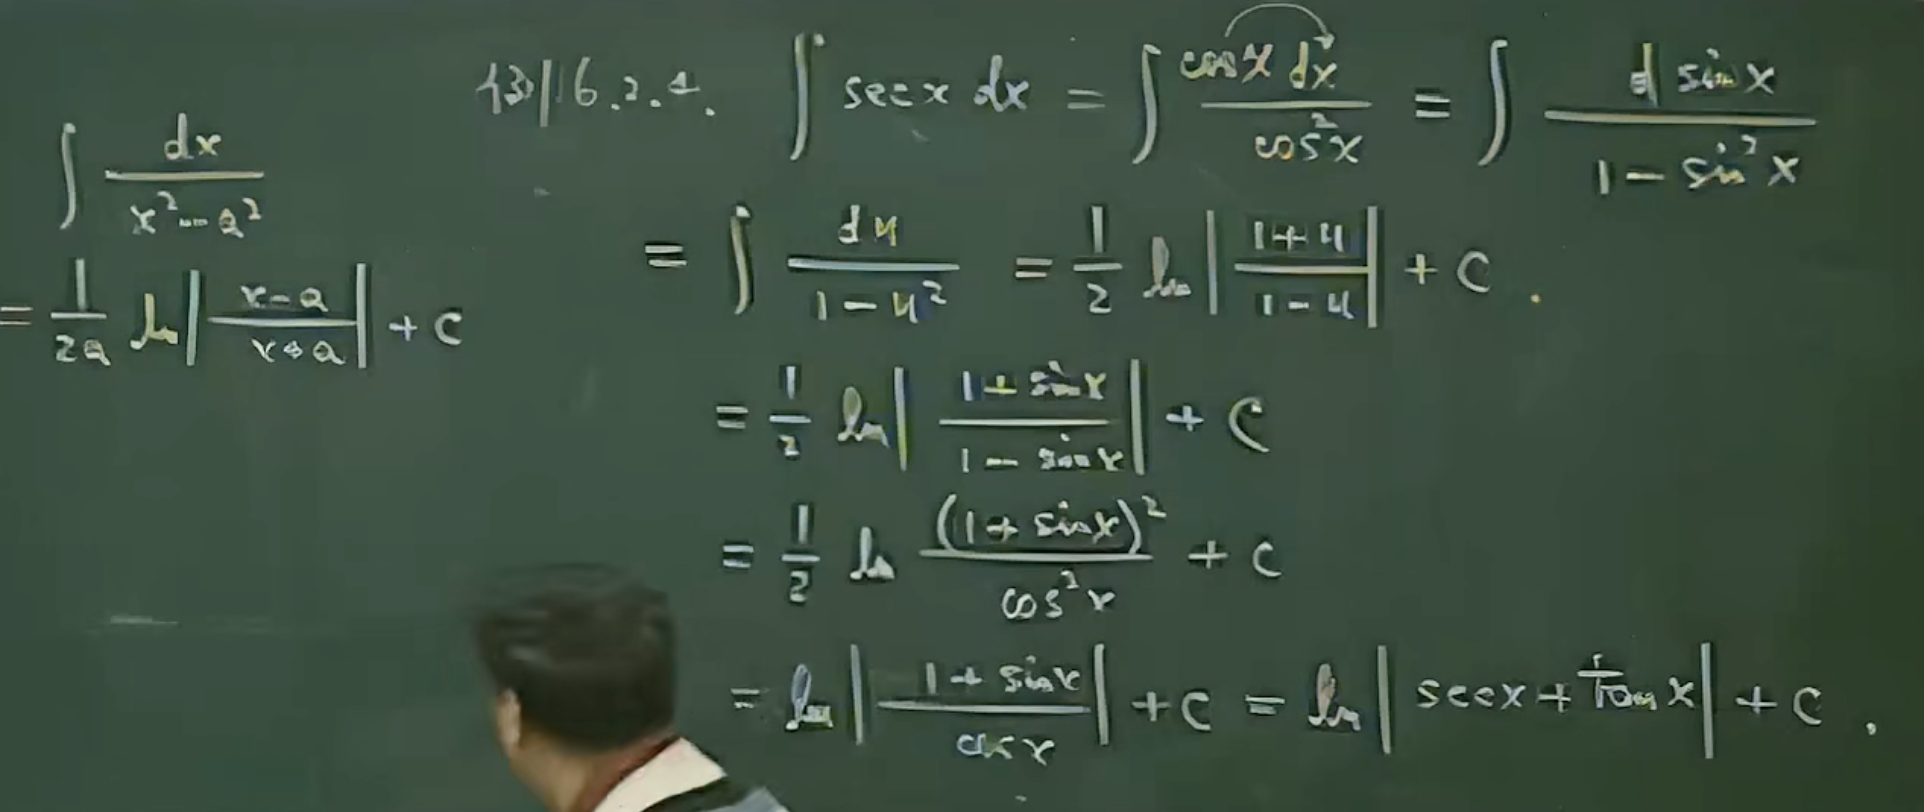 ∫ dx / (x² - a²)
= 1/(2a) ln | (x - a)/(x + a) | + C
例 6.2.4. ∫ sec x dx = ∫ cos x dx / cos² x = ∫ d sin x / (1 - sin² x)
= ∫ du / (1 - u²) = 1/2 ln | (1 + u)/(1 - u) | + C .
= 1/2 ln | (1 + sin x)/(1 - sin x) | + C
= 1/2 ln (1 + sin x)² / cos² x + C
= ln | (1 + sin x)/cos x | + C = ln | sec x + tan x | + C ,